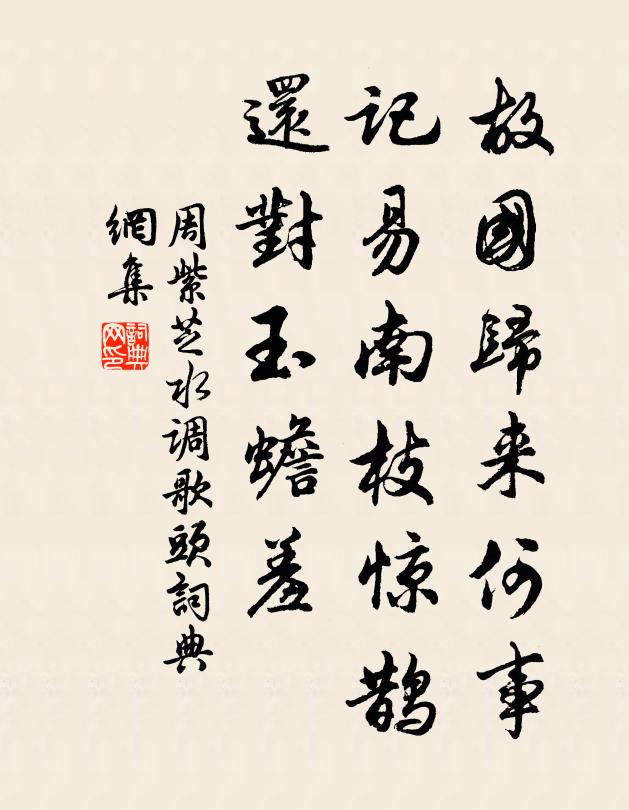 故國歸来何事
记易南枝惊鹊
還對玉蟾羞
周紫芝水调歌頭詞典
網集
詞典网印